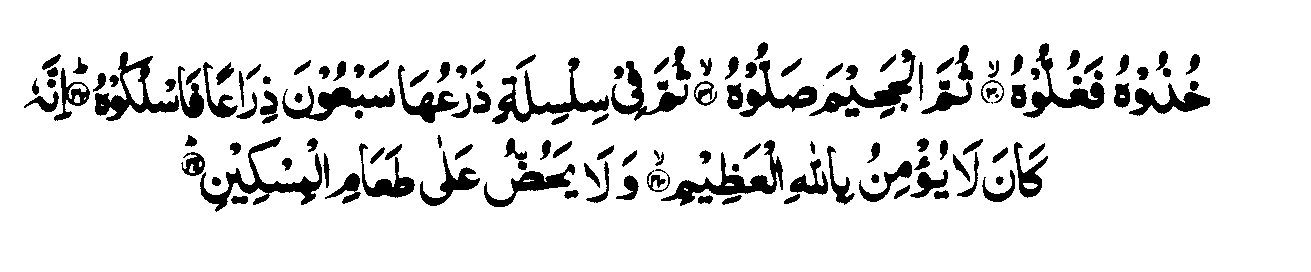 خُذُوْهُ فَغُلُّوْهُ ۙ﴿۳۰﴾ ثُمَّ الْجَحِيْمَ صَلُّوْهُ ۙ﴿۳۱﴾ ثُمَّ فِيْ سِلْسِلَةٍ ذَرْعُهَا سَبْعُوْنَ ذِرَاعًا فَاسْلُكُوْهُ ؕ﴿۳۲﴾ اِنَّهٗ
كَانَ لَا يُؤْمِنُ بِاللّٰهِ الْعَظِيْمِ ۙ﴿۳۳﴾ وَ لَا يَحُضُّ عَلٰى طَعَامِ الْمِسْكِيْنِ ؕ﴿۳۴﴾